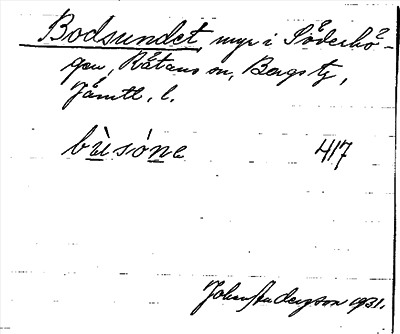 Bodsundet, myr i Söderhö-
gen, Råtans sn, Bergs tg,
Jämtl. l.
bùsónə 417
John Anderzson 1931.